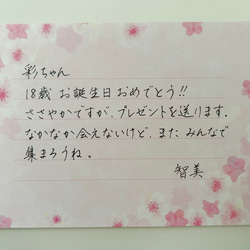 彩ちゃん
18歳 お誕生日 おめでとう!!
ささやかですが、プレゼントを送ります。
なかなか会えないけど、また みんなで
集まろうね。
智美